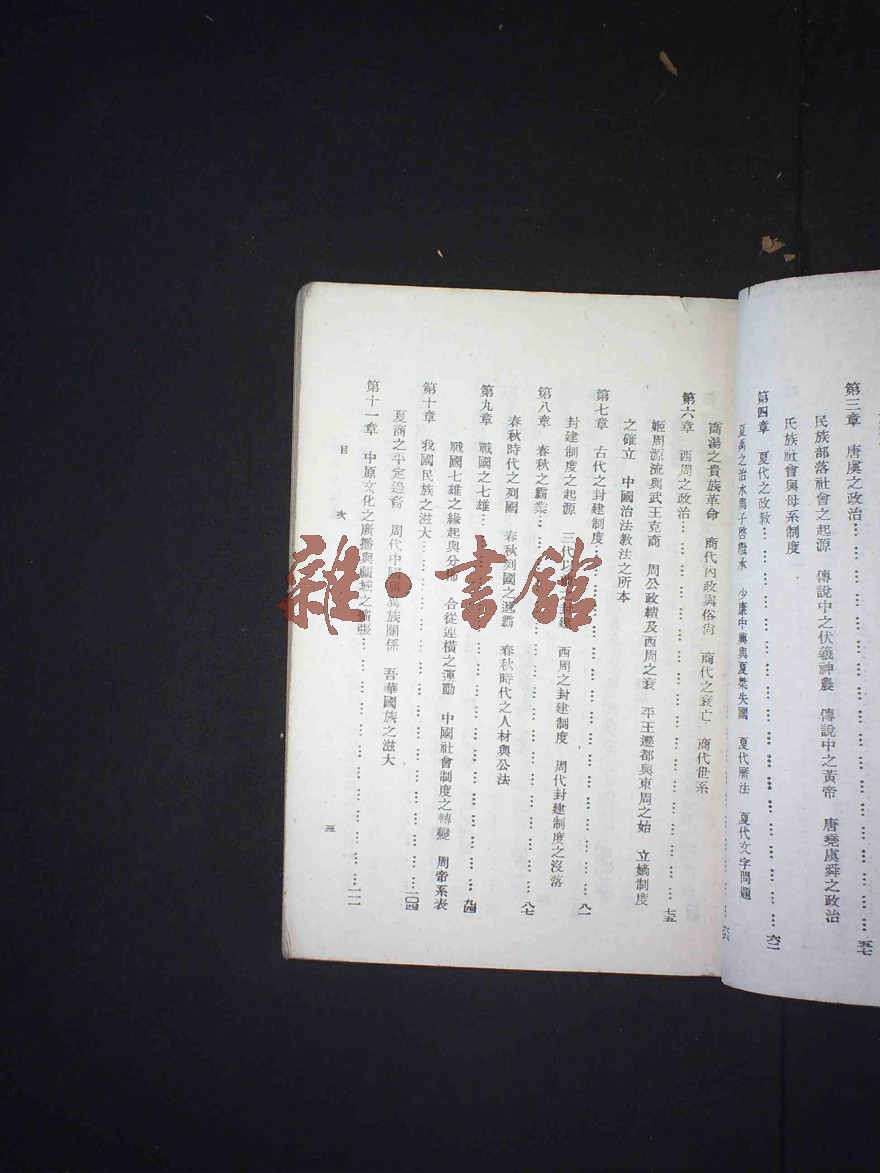 第三章　唐虞之政治…………五七
民族部落社會之起源　傳說中之伏羲神農　傳說中之黃帝　唐堯虞舜之政治
氏族社會與母系制度
第四章　夏代之政教…………六二
夏禹之治水與子啓繼承　少康中興與夏桀失國　夏代曆法　夏代文字問題
…………六六
商湯之貴族革命　商代內政與俗尚　商代之衰亡　商代世系
第六章　西周之政治…………七五
姬周源流與武王克商　周公政績及西周之衰　平王遷都與東周之始　立嫡制度
之確立　中國治法教法之所本
第七章　古代之封建制度…………八一
封建制度之起源　三代以前之封建　西周之封建制度　周代封建制度之沒落
第八章　春秋之霸業…………八七
春秋時代之列國　春秋列國之遞霸　春秋時代之人材與公法
第九章　戰國之七雄…………九四
戰國七雄之緣起與分佈　合從連橫之運動　中國社會制度之轉變　周帝系表
第十章　我國民族之滋大…………一〇四
夏商之平定邊裔　周代中國與異族關係　吾華國族之滋大
第十一章　中原文化之廣播與疆域之擴張…………一一一
目次
三
雜·書館